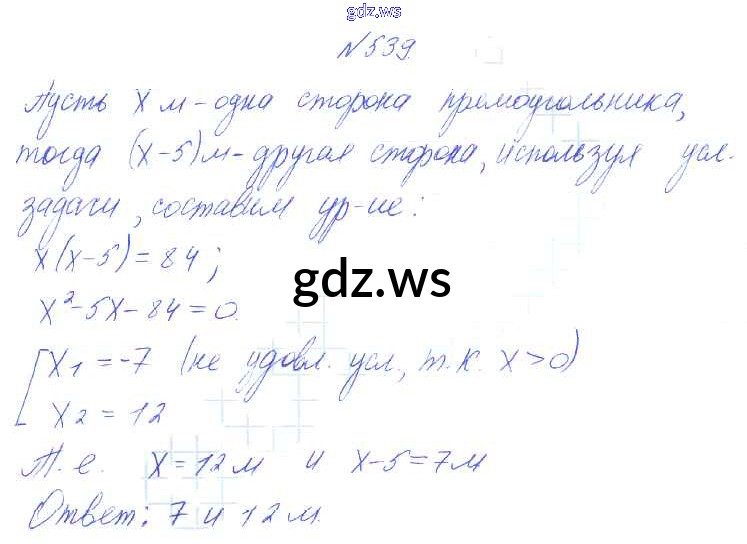 gdz.ws
№539.
Пусть х м - одна сторона прямоугольника,
тогда (х-5)м - другая сторона, используя усл.
задачи, составим ур-ие:
х(х-5)=84;
gdz.ws
х²-5х-84=0.
[х₁=-7 (не удовл. усл., т.к. х>0)
х₂=12
Т.е. х=12м и х-5=7м
Ответ: 7 и 12м.